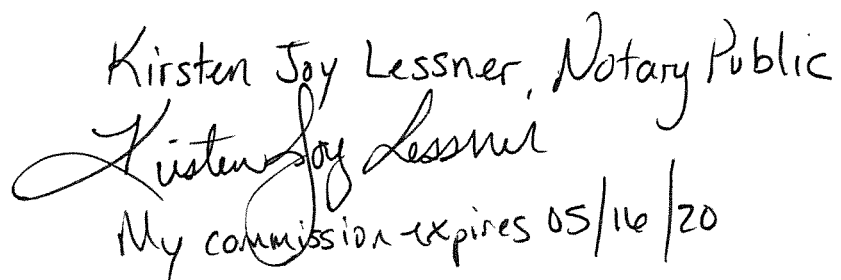 Kirsten Joy Lessner, Notary Public
Kirsten Joy Lessner
My commission expires 05/16/20